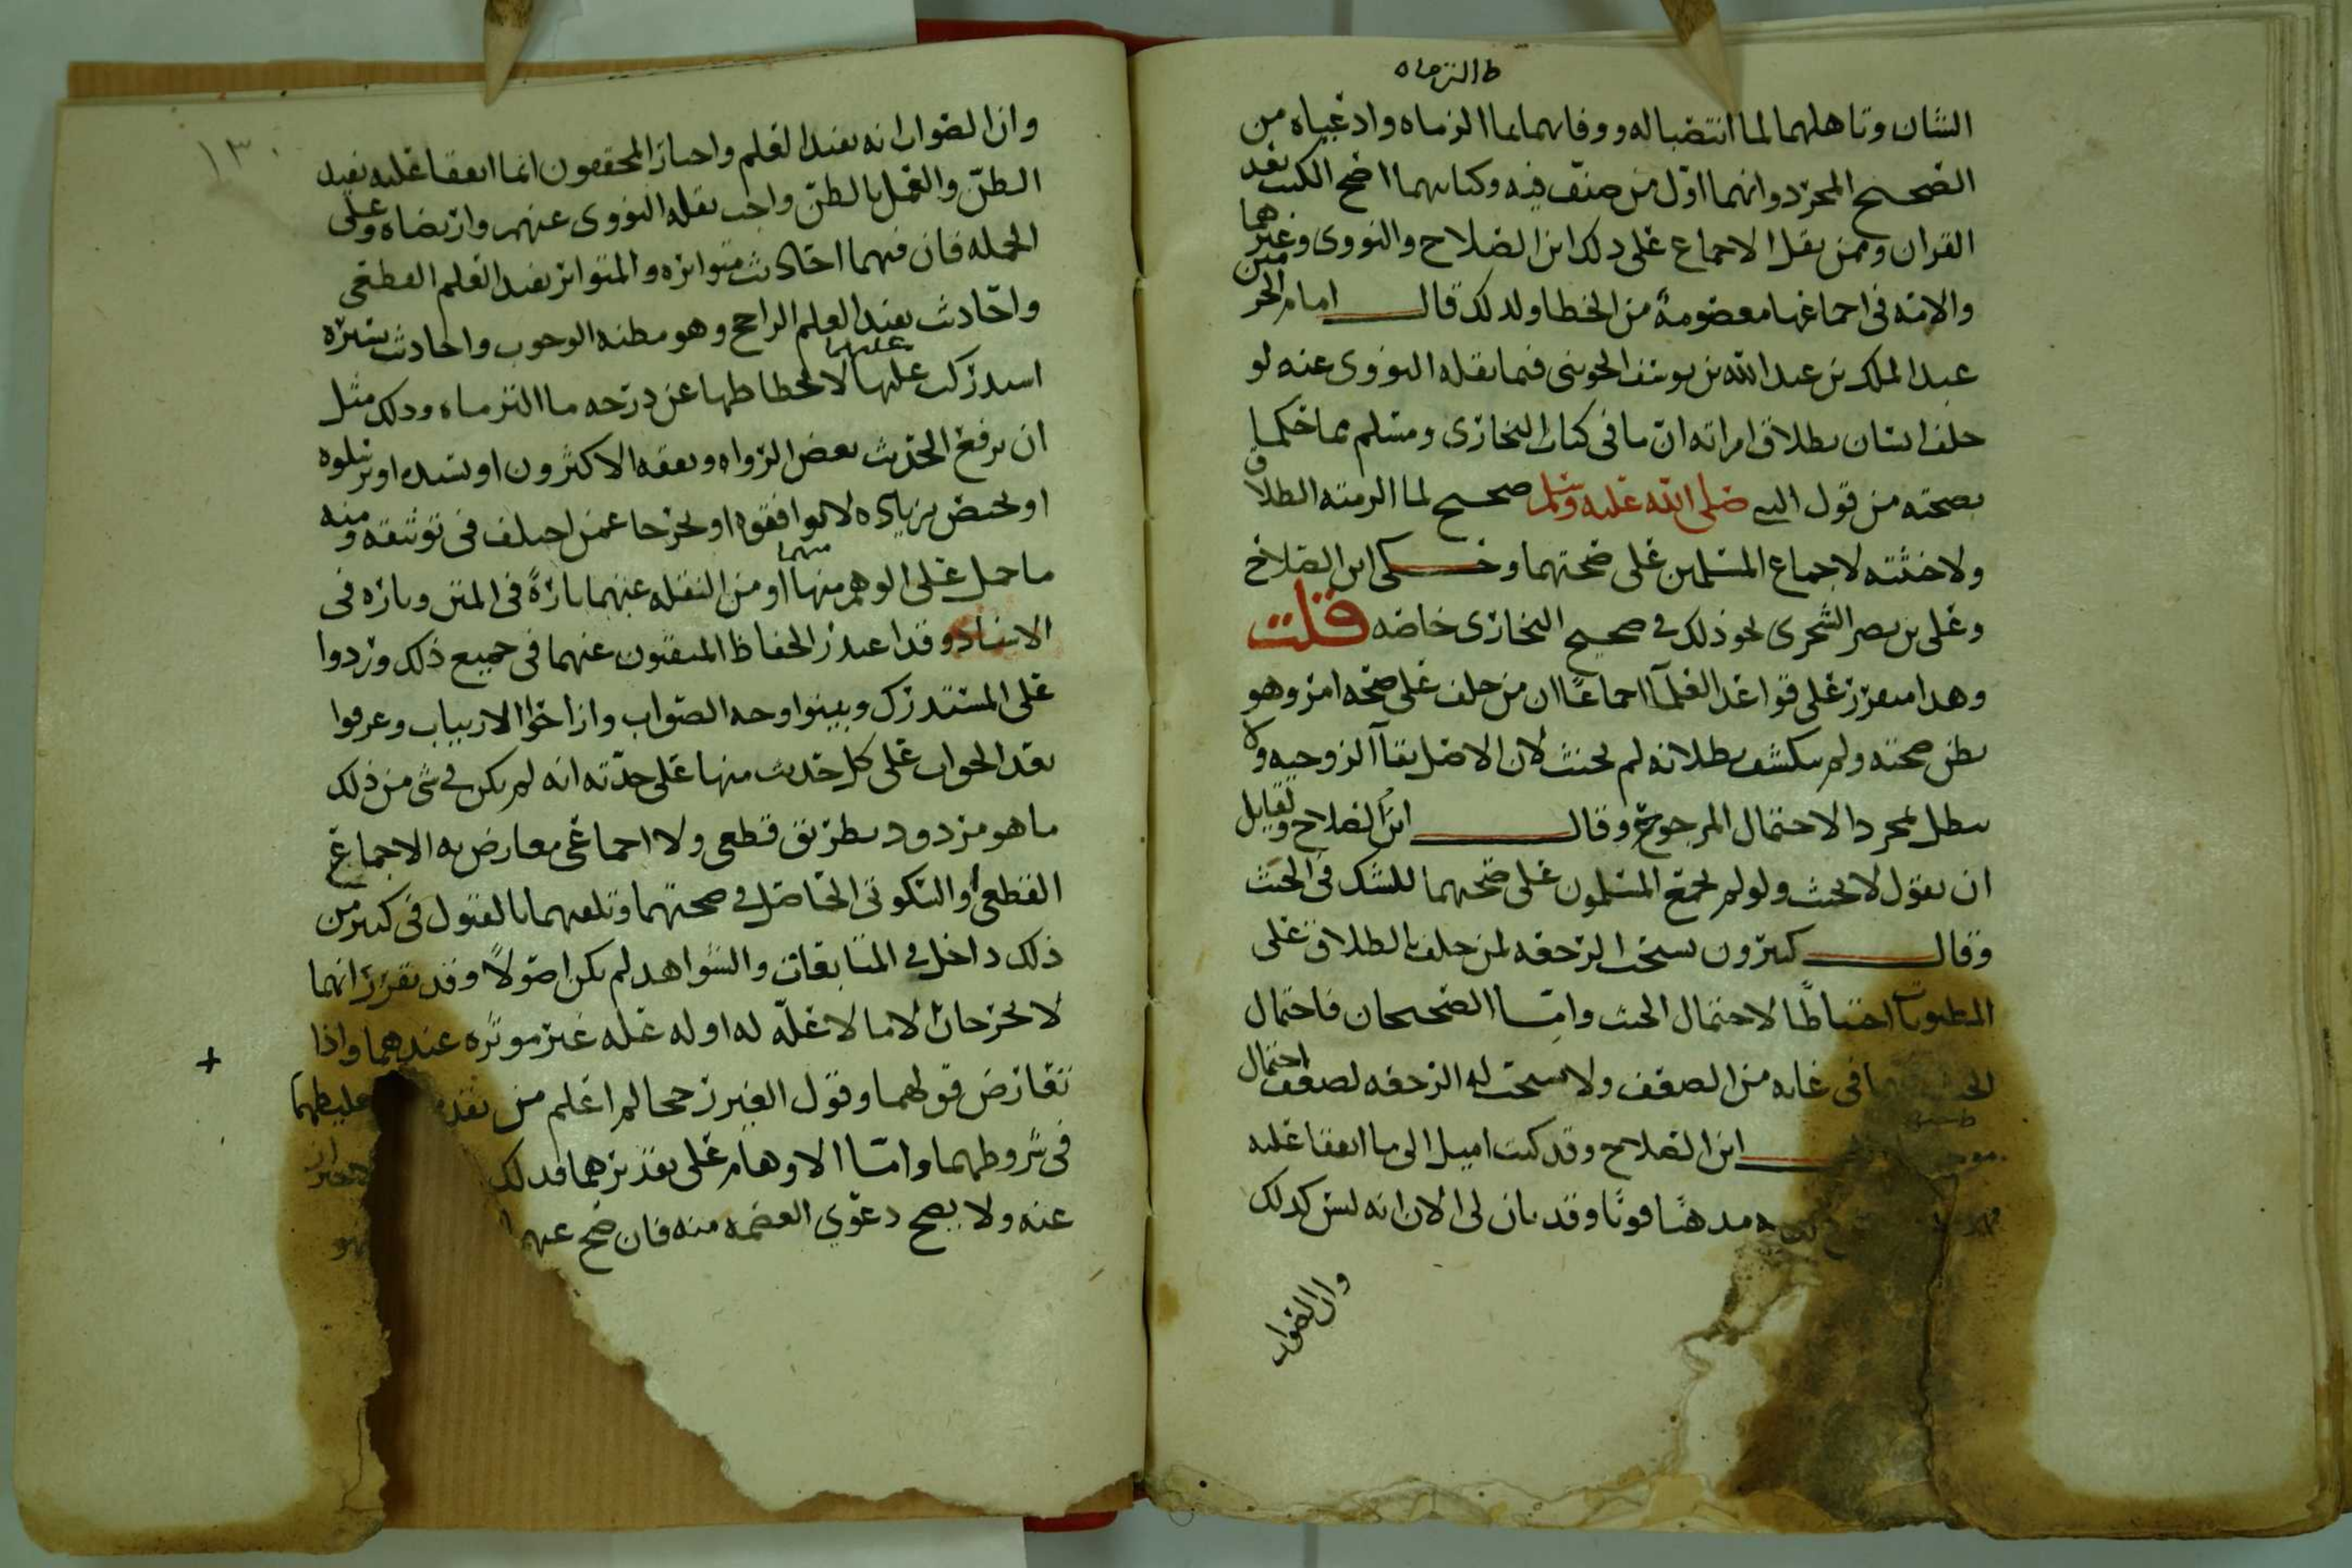 ط التزماه
الشان وتاهلهما لما انتصبا له ووفائهما بما الزماه وادعياه من
الصحيح المجرد وانهما اول من صنف فيه وكتابهما اصح الكتب بعد
القران وممن نقل الاجماع على ذلك ابن الصلاح والنووى وغيرهما
والامة فى اجماعها معصومة من الخطا ولذلك قال امام الحرمين
عبد الملك بن عبد الله بن يوسف الجوينى فيما نقله النووى عنه لو
حلف انسان بطلاق امراته ان ما فى كتاب البخارى ومسلم مما حكما
بصحته من قول النبى صلى الله عليه وسلم صحيح لما الزمته الطلاق
ولا حنثته لاجماع المسلمين على صحتهما وحكى ابن الصلاح
وعلى بن نصر الشجرى نحو ذلك فى صحيح البخارى خاصه قلت
وهذا متقرر على قواعد العلمآ اجماعًا ان من حلف على صحه امر وهو
يظن صحته ولم ينكشف بطلانه لم يحنث لان الاصل بقآ الزوجيه ولا
يبطل بمجرد الاحتمال المرجوح وقال ابن الصلاح ولقايل
ان يقول لا يحنث ولو لم يجمع المسلمون على صحتهما للشك فى الحنث
وقال كثيرون يستحب الرجعه لمن حلف بالطلاق على
المظنونات احتياطًا لاحتمال الحنث وامّا الصحيحان فاحتمال
الحنث فيهما فى غايه من الضعف ولا يستحب له الرجعه لضعف احتمال
ابن الصلاح وقد كنت اميل الى ما اتفقا عليه
مذهبًا قويًا وقد بان لى الان انه ليس كذلك
وان الصواب
١٣٠
وان الصواب انه يفيد العلم واختار المحققون انما اتفقا عليه يفيد
الظنّ والعمل بالظن واجب نقله النووى عنهم وارتضاه وعلى
الجمله فان فيهما احاديث متواتره والمتواتر يفيد العلم القطعى
واحاديث يفيد العلم الراجح وهو مظنه الوجوب واحاديث يسيره
عليهما
استدركت عليها لانحطاطها عن درجه ما التزماه وذلك مثل
ان يرفع الحديث بعض الرواه ويقفه الاكثرون او يسنده او يرسلوه
او يختص بزياده لا يوافقوه او يخرجا عمن اختلف فى توثيقه ومنه
منهما
ما حمل على الوهم منها او من النقله عنهما تارةً فى المتن وتاره فى
الاسناد وقد اعتذر الحفاظ المتقنون عنهما فى جميع ذلك وردوا
على المستدرك وبينوا وجه الصواب وازاحوا الارتياب وعرفوا
بعد الجواب على كل حديث منها على حدّته انه لم يكن فى شى من ذلك
ما هو مردود بطريق قطعى ولا اجماعى معارض به الاجماع
القطعى او السكوتى الحاصل فى صحتهما وتلقيهما بالقبول فى كثير من
ذلك داخل فى المتابعات والشواهد لم يكن اصولًا وقد تقرر انهما
لا يخرجان الا ما لا علّه له او له عله غير موثره عندهما واذا
تعارض قولهما وقول الغير رجحا لم اعلم من تقدم تغليطهما
فى شروطهما وامّا الاوهام على تقديرهما فذلك
عنه ولا يصح دعوى العصمه منه فان صح عنهما